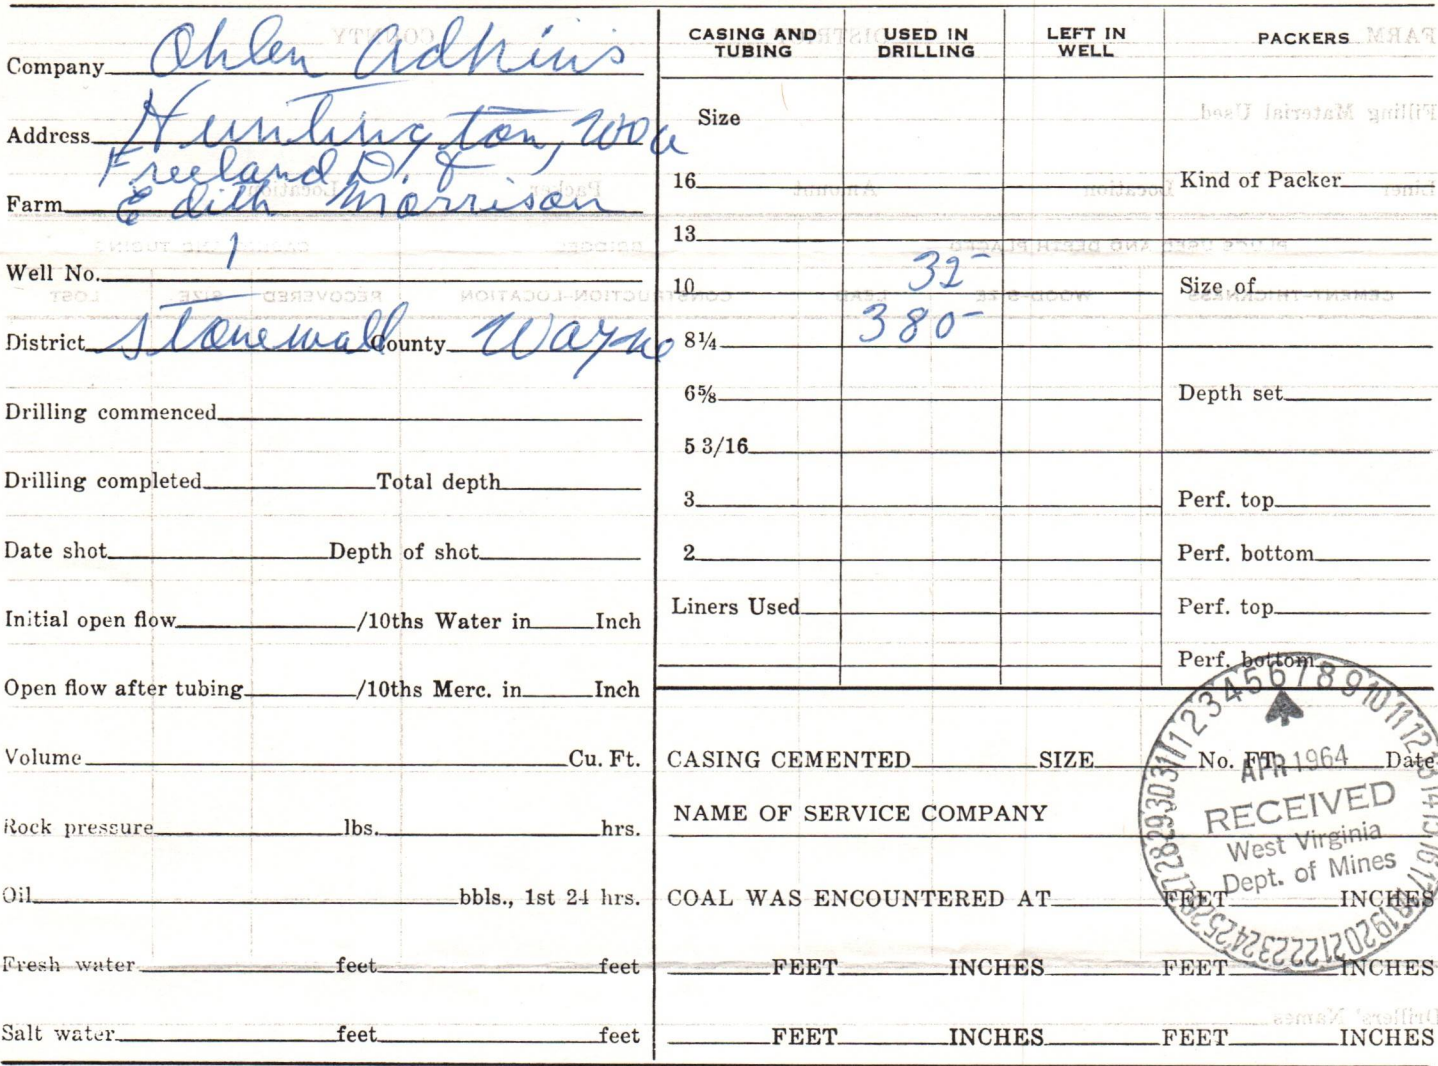 Company Ohlen Adkins
Address Huntington, W Va
Freeland D. &
Farm Edith Morrison
Well No. 1
District Stonewall County Wayne
Drilling commenced
Drilling completed Total depth
Date shot Depth of shot
Initial open flow /10ths Water in Inch
Open flow after tubing /10ths Merc. in Inch
Volume Cu. Ft.
Rock pressure lbs. hrs.
Oil bbls., 1st 24 hrs.
Fresh water feet feet
Salt water feet feet
CASING AND TUBING USED IN DRILLING LEFT IN WELL PACKERS
Size
16 Kind of Packer
13
10 32- Size of
8¼ 380-
6⅝ Depth set
5 3/16
3 Perf. top
2 Perf. bottom
Liners Used Perf. top
Perf. bottom
CASING CEMENTED SIZE No. FT. Date
NAME OF SERVICE COMPANY
COAL WAS ENCOUNTERED AT FEET INCHES
FEET INCHES FEET INCHES
FEET INCHES FEET INCHES
1 2 3 4 5 6 7 8 9 10 11 12 13 14 15 16 17 18 19 20 21 22 23 24 25 26 27 28 29 30 31
APR 1964
RECEIVED
West Virginia
Dept. of Mines